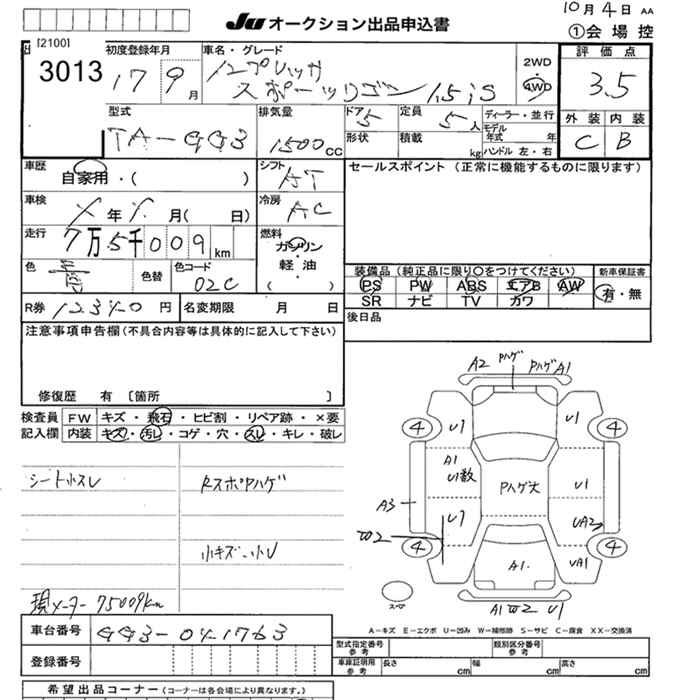 10月4日 AA
JU オークション出品申込書
①会場控
[2100]
3013
初度登録年月
17 9月
車名・グレード
インプレッサ
スポーツワゴン 1.5iS
2WD
4WD
評価点
3.5
外装 内装
C B
型式
TA-GG3
排気量
1500cc
ドア 5
形状
定員 5人
積載 kg
ディーラー・並行
モデル年式 年
ハンドル 左・右
車歴
自家用・( )
シフト
AT
セールスポイント (正常に機能するものに限ります)
車検
年 月( 日)
冷房
AC
走行
7万5千009km
燃料
ガソリン
軽・油
( )
色
色替
色コード
02C
装備品 (純正品に限り○をつけてください)
PS PW ABS エアB AW
SR ナビ TV カワ
新車保証書
有・無
R券 12340円
名変期限 月 日
後日品
注意事項申告欄 (不具合内容等は具体的に記入して下さい)
修復歴 有 〔箇所 〕
検査員記入欄
FW キズ・飛石・ヒビ割・リペア跡・×要
内装 キズ・汚レ・コゲ・穴・スレ・キレ・破レ
シート小スレ
RスポPハゲ
小キズ・小U
現メーター 75009km
A2 Pハゲ PハゲA1
U1 U1
4 4
A1
U1数
Pハゲ大
U1
A3
U1
UA2
W2
4 4
A1
UA1
スペア
A1 W2 U1
A−キズ E−エクボ U−凹み W−補修跡 S−サビ C−腐食 XX−交換済
車台番号 GG3-041763
登録番号
型式指定番号 参考
類別区分番号 参考
車庫証明用 参考
長さ cm 幅 cm 高さ cm
希望出品コーナー (コーナーは各会場により異なります。)